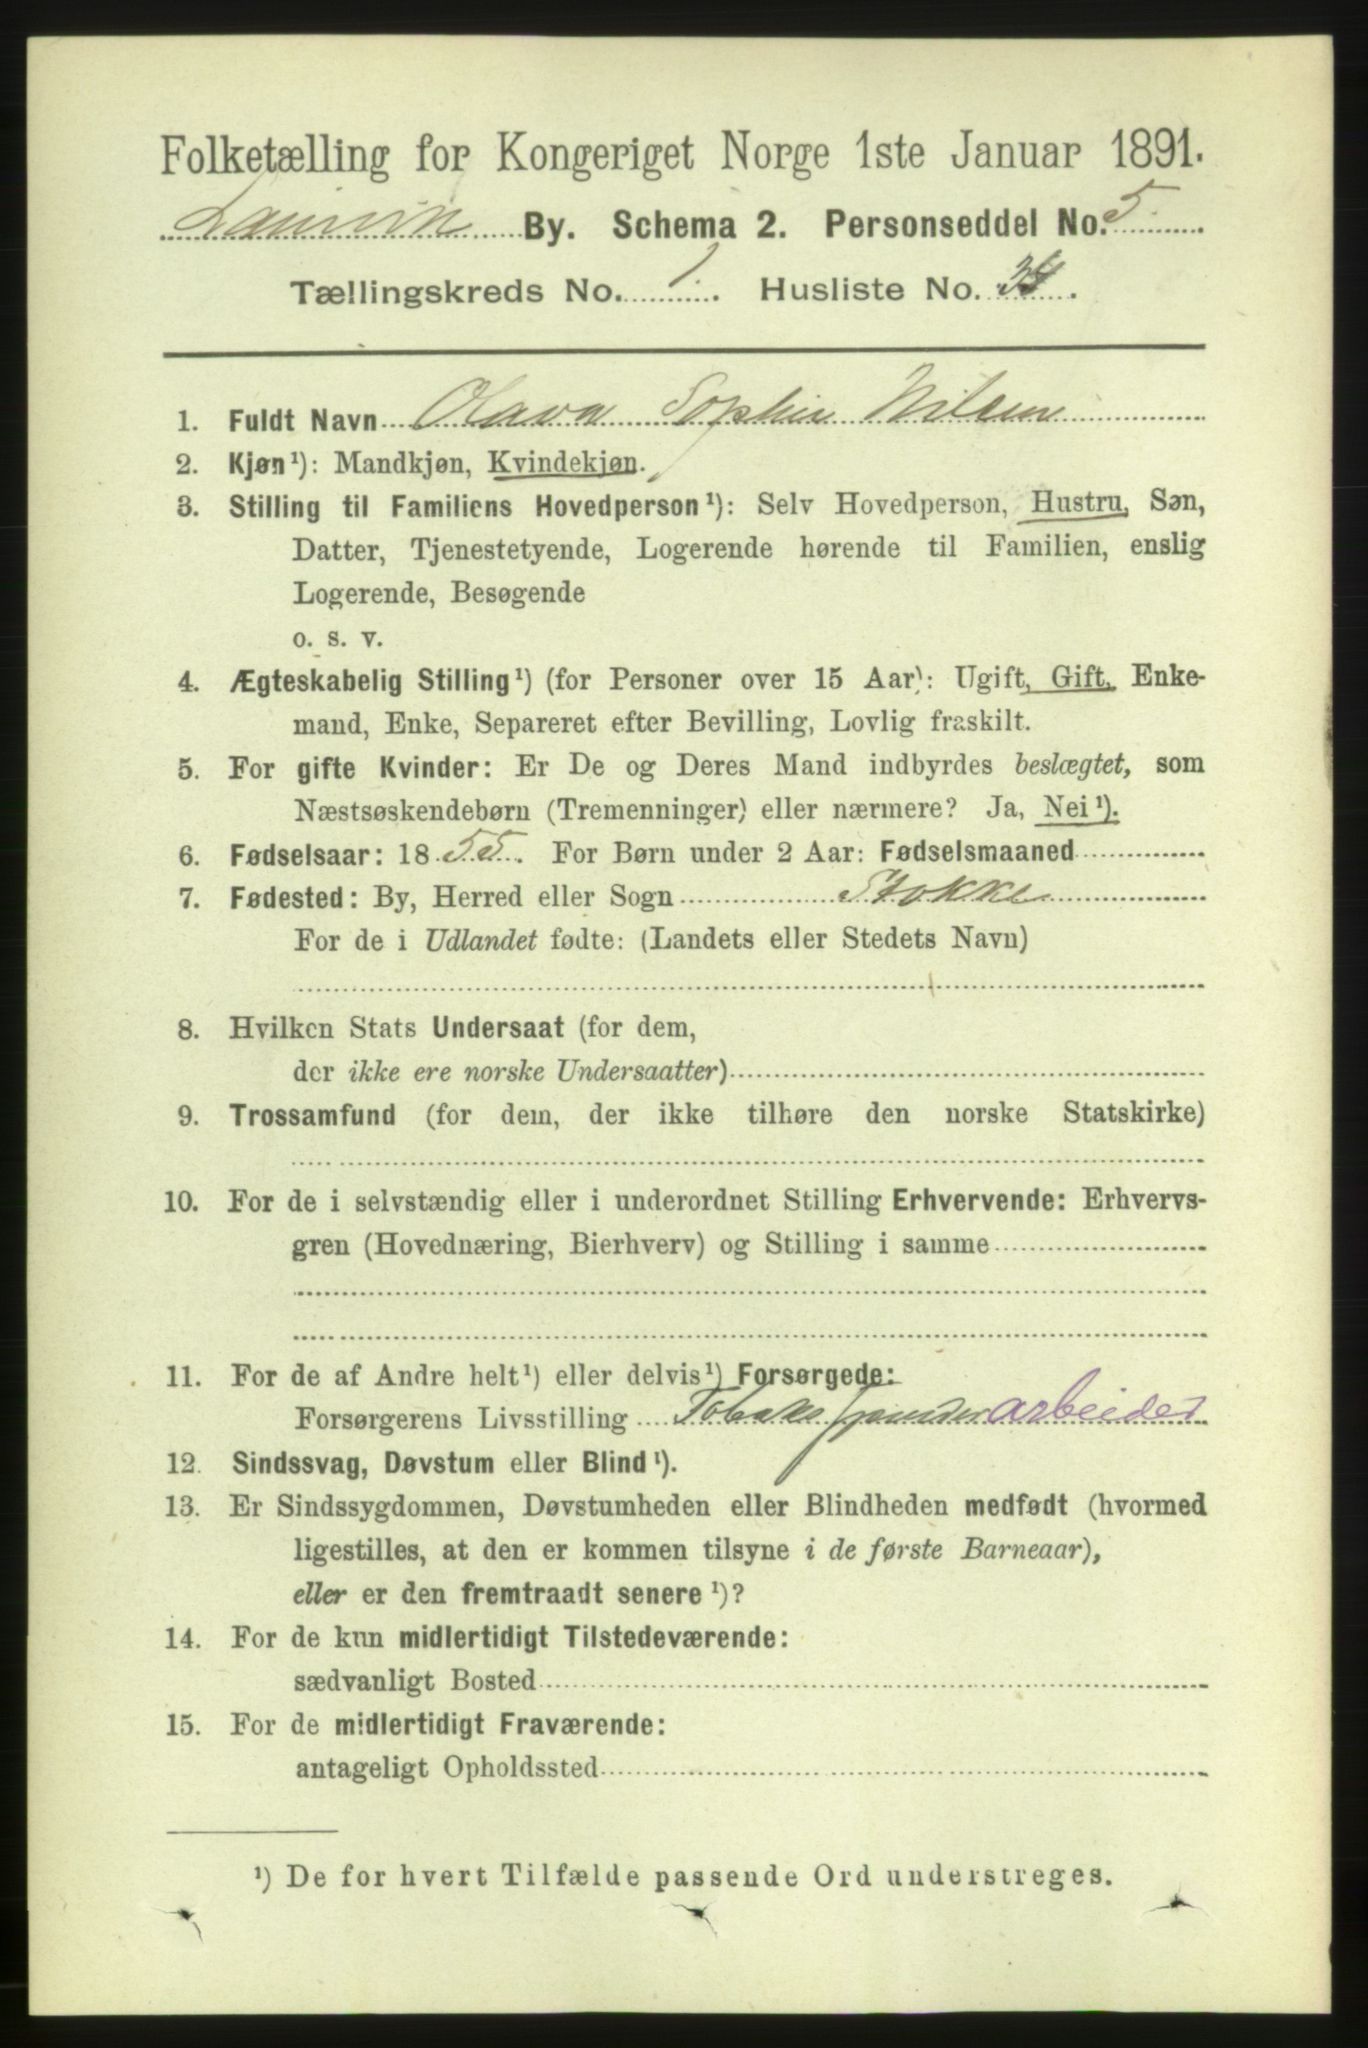 Folketælling for Kongeriget Norge 1ste Januar 1891.
Laurvik By. Schema 2. Personseddel No. 5.
Tællingskreds No. 1. Husliste No. 34.
1. Fuldt Navn Olava Sophie Nilsen
2. Kjøn¹): Mandkjøn, Kvindekjøn.
3. Stilling til Familiens Hovedperson¹): Selv Hovedperson, Hustru, Søn,
Datter, Tjenestetyende, Logerende hørende til Familien, enslig
Logerende, Besøgende
o. s. v.
4. Ægteskabelig Stilling¹) (for Personer over 15 Aar): Ugift, Gift, Enke-
mand, Enke, Separeret efter Bevilling, Lovlig fraskilt.
5. For gifte Kvinder: Er De og Deres Mand indbyrdes beslægtet, som
Næstsøskendebørn (Tremenninger) eller nærmere? Ja, Nei¹).
6. Fødselsaar: 1855. For Børn under 2 Aar: Fødselsmaaned
7. Fødested: By, Herred eller Sogn Stokke
For de i Udlandet fødte: (Landets eller Stedets Navn)
8. Hvilken Stats Undersaat (for dem,
der ikke ere norske Undersaatter)
9. Trossamfund (for dem, der ikke tilhøre den norske Statskirke)
10. For de i selvstændig eller i underordnet Stilling Erhvervende: Erhvervs-
gren (Hovednæring, Bierhverv) og Stilling i samme
11. For de af Andre helt¹) eller delvis¹) Forsørgede:
Forsørgerens Livsstilling Tobaks arbeider
12. Sindssvag, Døvstum eller Blind¹).
13. Er Sindssygdommen, Døvstumheden eller Blindheden medfødt (hvormed
ligestilles, at den er kommen tilsyne i de første Barneaar),
eller er den fremtraadt senere¹)?
14. For de kun midlertidigt Tilstedeværende:
sædvanligt Bosted
15. For de midlertidigt Fraværende:
antageligt Opholdssted
¹) De for hvert Tilfælde passende Ord understreges.